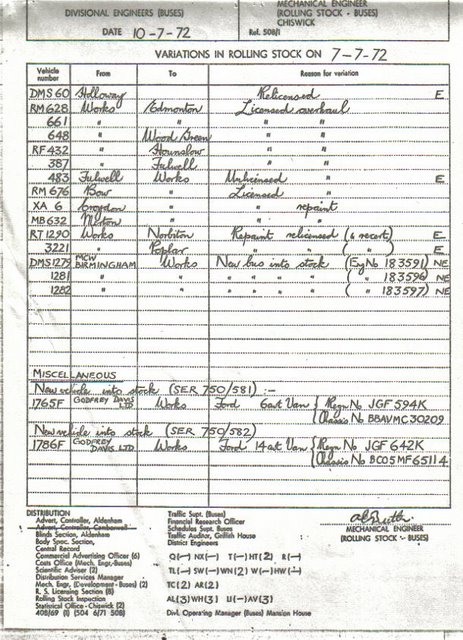 DIVISIONAL ENGINEERS (BUSES)
MECHANICAL ENGINEER
(ROLLING STOCK - BUSES)
CHISWICK
DATE 10-7-72 Ref. 508/1
VARIATIONS IN ROLLING STOCK ON 7-7-72
Vehicle number From To Reason for variation
DMS 60 Holloway Relicensed E
RM 628 Works Edmonton Licensed overhaul
661 " " " "
648 " Wood Green " "
RF 432 " Hounslow " "
387 " Fulwell " "
483 Fulwell Works Unlicensed " E
RM 676 Bow " Licensed "
XA 6 Croydon " " repaint
MB 632 Merton " " "
RT 1290 Works Norbiton Repaint relicensed (& recert) E
3221 " Poplar " " ( " ) E
DMS 1279 MCW BIRMINGHAM Works New bus into stock (Eng No 183591) NE
1281 " " " " " " ( " 183596) NE
1282 " " " " " " ( " 183597) NE
MISCELLANEOUS
New vehicle into stock (SER 750/581) :-
1765F GODFREY DAVIS LTD Works Ford 6cwt Van { Regn No JGF 594K
Chassis No BBAVMC30209
New vehicle into stock (SER 750/582)
1786F GODFREY DAVIS LTD Works Ford 14cwt Van { Regn No JGF 642K
Chassis No BC05MF65114
DISTRIBUTION
Advert, Controller, Aldenham
Advert, Controller, Camberwell
Blinds Section, Aldenham
Body Spec. Section,
Central Record
Commercial Advertising Officer (6)
Costs Office (Mech. Engr-Buses)
Scientific Adviser (2)
Distribution Services Manager
Mech. Engr, (Development - Buses) (2)
R. S. Licensing Section (8)
Rolling Stock Inspection
Statistical Office - Chiswick (2)
408/69 (1) (504 6/71 508)
Traffic Supt. (Buses)
Financial Research Officer
Schedules Supt. Buses
Traffic Auditor, Griffith House
District Engineers
Q(—) NX(—) T(—) HT(2) R(—)
TL(—) SW(—) WN(2) W(—) HW(—)
TC(2) AR(2)
AL(3) WH(3) U(—) AV(3)
Divl. Operating Manager (Buses) Mansion House
MECHANICAL ENGINEER
(ROLLING STOCK - BUSES)